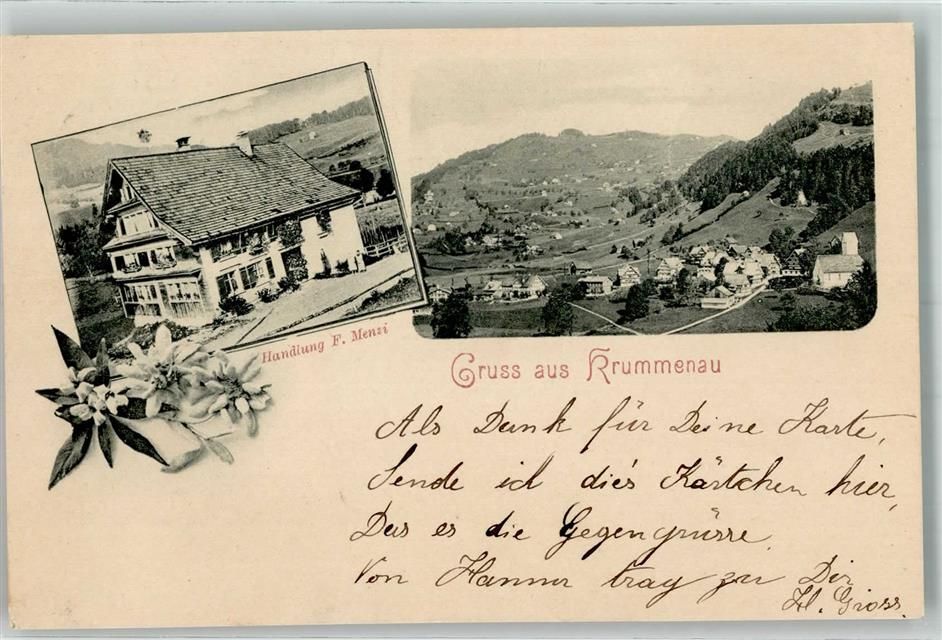 Handlung F. Menzi
Gruss aus Krummenau
Als Dank für Deine Karte,
Sende ich dies Kärtchen hier,
Das es die Gegengrüsse
Von Hanna trag zu Dir
H. Gross.